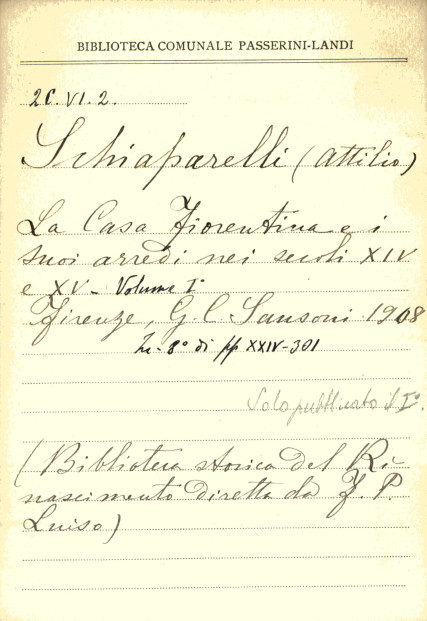 BIBLIOTECA COMUNALE PASSERINI-LANDI
2C.VI.2.
Schiaparelli (Attilio)
La Casa Fiorentina e i
suoi arredi nei secoli XIV
e XV - Volume I°
Firenze, G. C. Sansoni 1908
In-8° di pp XXIV-301
Solo pubblicato il I°.
(Biblioteca storica del Ri-
nascimento diretta da F. P.
Luiso)